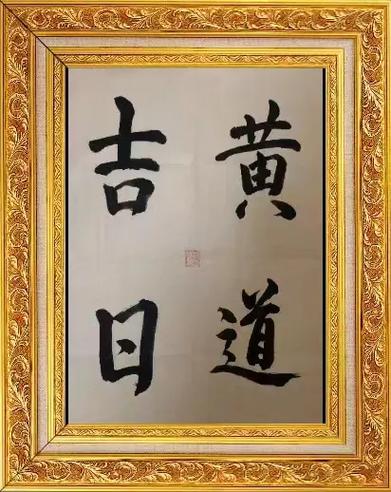 黄道
吉日